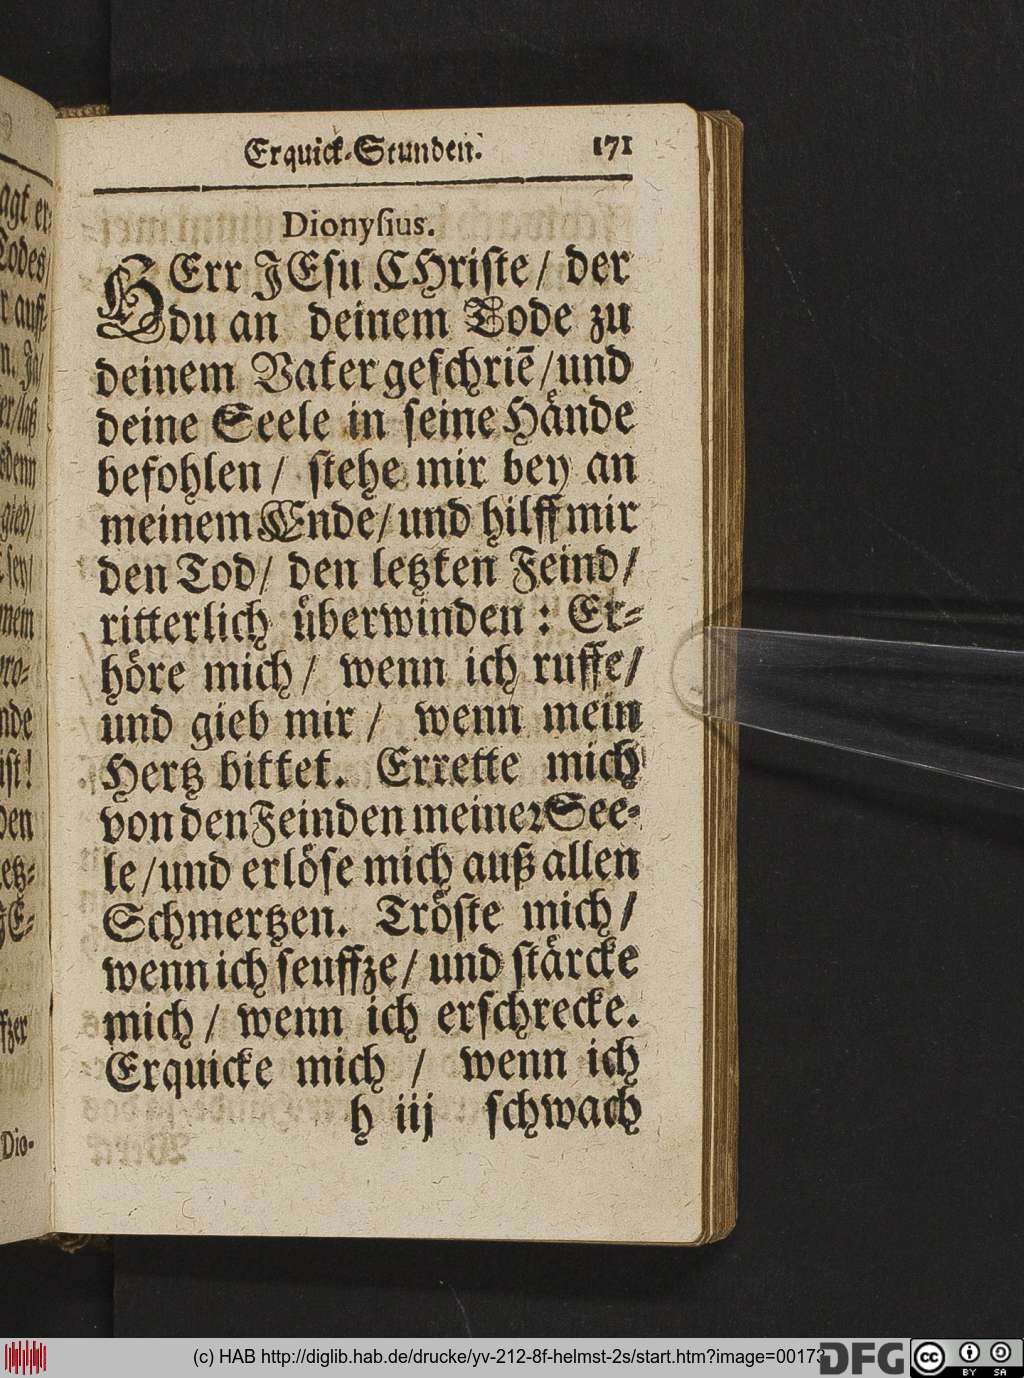 Erquick-Stunden. 171
Dionyſius.
HErr JEſu CHriſte / der
du an deinem Tode zu
deinem Vater geſchriē / und
deine Seele in ſeine Hände
befohlen / ſtehe mir bey an
meinem Ende / und hilff mir
den Tod / den letzten Feind /
ritterlich überwinden : Er-
höre mich / wenn ich ruffe /
und gieb mir / wenn mein
Hertz bittet. Errette mich
von den Feinden meiner See-
le / und erlöſe mich auß allen
Schmertzen. Tröſte mich /
wenn ich ſeuffze / und ſtärcke
mich / wenn ich erſchrecke.
Erquicke mich / wenn ich
h iij ſchwach
(c) HAB http://diglib.hab.de/drucke/yv-212-8f-helmst-2s/start.htm?image=00173
DFG
cc BY SA